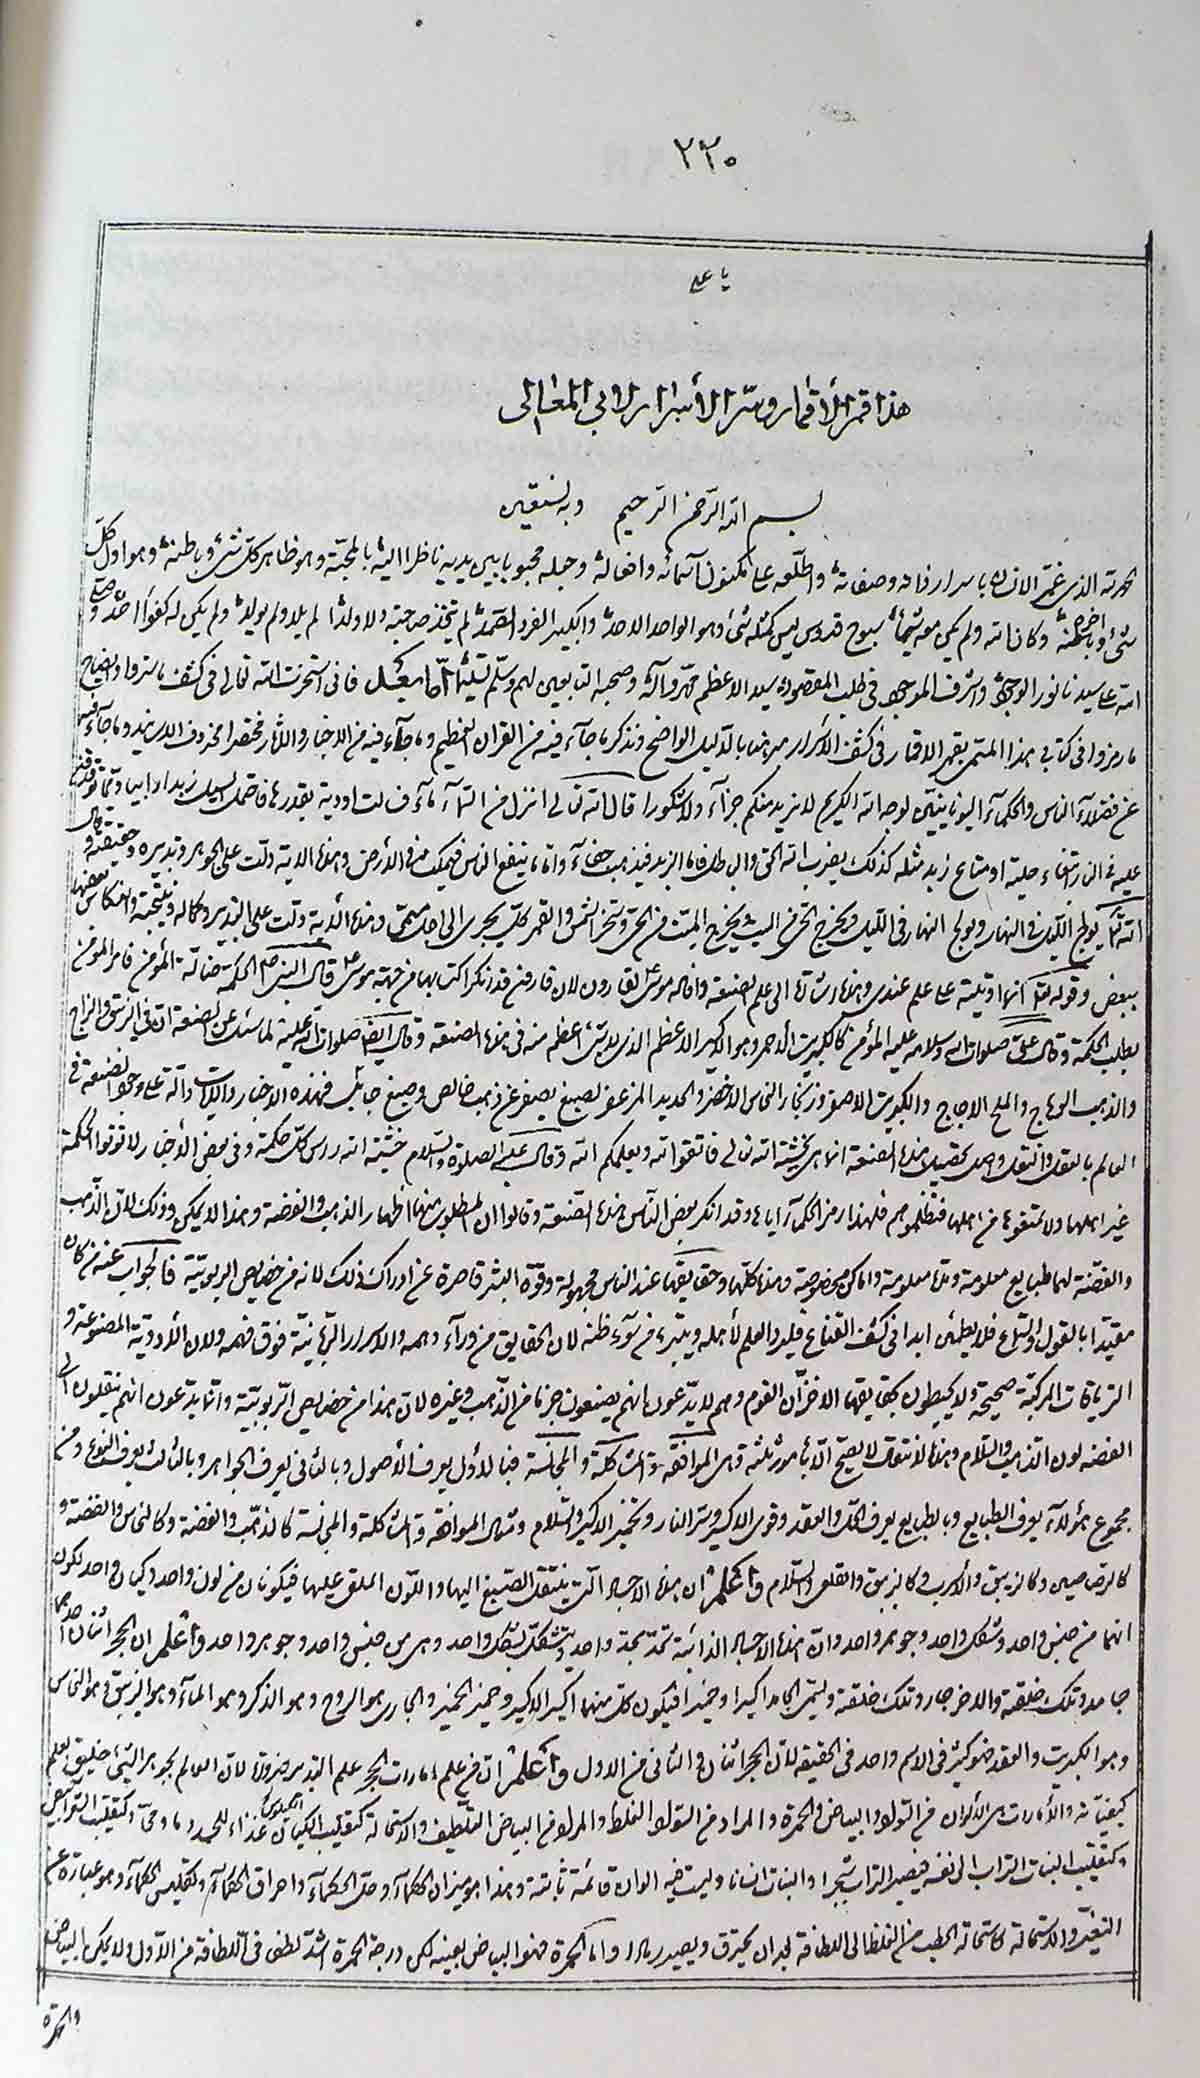 ٢٢٠
يا علي
هذا قمر الأقمار وسر الأسرار لابي المعالي
بسم الله الرحمن الرحيم وبه نستعين
الحمد لله الذي الانسان باسرار ذاته وصفاته واطلعه على مكنون اسمائه وافعاله وجعله محبوبا بين يديه ناظرا اليه بالمحبة وهو ظاهر كل شئ وباطنه وهو اول كل
شئ وكان الله ولم يكن معه شيئا سبوح قدوس ليس كمثله شئ وهو الواحد الاحد والكبير الفرد الصمد لم يتخذ صاحبة ولا ولدا لم يلد ولم يولد ولم يكن له كفوا احد وصلى
الله على سيدنا نور الوجود واشرف الموجود في طلب المقصود سيد الاعظم محمد وآله وصحبه التابعين لهم وسلم تسليما اما بعد فاني استخرت الله تعالى في كشف ما ستروا وايضاح
ما رمزوا في كتابي هذا المسمى بقمر الاقمار في كشف الاسرار بالدليل الواضح ونذكر ما جآء فيه من القران العظيم وما جآء فيه من الاخبار والاثار مختصرا محذوف الاسانيد وما جآء فيه
عن فضلاء الناس والحكمآء اليونانيين لوجه الله الكريم لا نريد منكم جزآء ولا شكورا قال الله تعالى انزل من السمآء مآء فسالت اودية بقدرها فاحتمل السيل زبدا رابيا ومما توقدون
عليه في النار ابتغاء حلية او متاع زبد مثله كذلك يضرب الله الحق والباطل فاما الزبد فيذهب جفآء واما ما ينفع الناس فيمكث في الأرض وهذه الاية دلت على الجوهر وتدبيره وحقيقته وقال
الله تعالى يولج الليل في النهار ويولج النهار في الليل ويخرج الحي من الميت ويخرج الميت من الحي وسخر الشمس والقمر كل يجري الى اجل مسمى وهذه الأية دلت على التدبير وكماله ونتيجته وانعكاس بعضها
ببعض وقوله تعالى انما اوتيته على علم عندي وهذه اشارة الى علم الصنعة وما قاله موسى لقارون لان قارون قد اكتسبها من جهة موسى قال النبي الحكمة ضالة المؤمن فامر المؤمن
بطلب الحكمة وقال علي صلوات الله وسلامه عليه المؤمن كالكبريت الأحمر وهو الاكسير الاعظم الذي لا شئ اعظم منه في هذه الصنعة وقال ايضا صلوات الله عليه لما سئل عن الصنعة ان في الزيبق والزاج
والذهب الوهاج والملح الاجاج والكبريت الاصفر وزنجار النحاس الاخضر والحديد المزعفر لصبغ يصفر عن ذهب خالص وصبغ فهذه الاخبار والايات دالة على وجود الصنعة في
العالم بالعقل والنقل واصل تحصيل هذه الصنعة انما هي بخشية الله تعالى فاتقوا الله ويعلمكم الله وقال عليه الصلوة والسلام خشية الله راس كل حكمة وفي بعض الأخبار لا توتوا الحكمة
غير اهلها ولا تمنعوها من اهلها فتظلموهم فلهذا رمز الحكمآء اياها وقد انكر بعض الناس هذه الصنعة وقالوا ان المطلوب منها اظهار الذهب والفضة وهذا لا يمكن وذلك لان الذهب
والفضة لها طبايع معلومة ومعلومة واماكن مخصوصة وهذه كلها وحقايقها عند الناس مجهولة وقوة البشر قاصرة عن ادراك ذلك لانه من خصايص الربوبية فالجواب عنه من كان
مقيدا بالقول والسماع فلا يطمئن ابدا في كشف القناع فليرد العلم لأهله ويتبرء من سوء ظنه لان الحقايق من ورآء وهمه والاسرار الربانية فوق فهمه ولان الأدوية المصنوعة و
الترياقات المركبة صحيحة ولا يحيطون بحقايقها الا خزان القوم وهم لا يدعون انهم يصنعون جزءا من الذهب وغيره لان هذا من خصايص الربوبية وانما يدعون انهم ينقلون الى
الفضه لون الذهب والسلام وهذا الانتقال لا يصح الا بامور ثلثة وهي الموافقة والمشاكلة والمجانسة فبالأول يعرف الأصول وبالثاني يعرف الجواهر وبالثالث يعرف النوع ومن
مجموع هؤلآء يعرف الطبايع وبالطبايع يعرف الحل والعقد وقوى الاكسير وسر النار وتخمير الاكسير والسلام ومثال الموافقة والمشاكلة والمجانسة كالذهب والفضة وكالنحاس والفضة و
كالرصاصين وكالزيبق والأسرب وكالزيبق والقلعي والسلام واعلم ان هذه الاجساد التي ينتقل الصبغ اليها واللون الملقى عليها فيكونان من لون واحد وكيان واحد لكون
انهما من جنس واحد وشكل واحد وجوهر واحد وان هذه الاجساد الذائبة تتحد بجسد واحد ويتشكل بشكل واحد وهي من جنس واحد وجوهر واحد واعلم ان الحجر اثنان احدهما
جامد وتلك خلقته والاخر جار وتلك خلقته وليسمى الجامد اكسيرا وخميرا فيكون كل منهما اكسير الاكسير وخمير الخمير والجاري هو الروح وهو الذكر وهو المآء وهو الزيبق وهو النحاس
وهو الكبريت والعقد فهو كثير في الاسم واحد في الحقيقة لان الحجر اثنان والثاني من الاول واعلم ان من علم امارات الحجر علم التدبير ضرورة لان العالم بجوهر الشئ خليق بعلم
كيفياته والأمارات هي الألوان من السواد والبياض والحمرة والمراد من السواد الغلظ والمراد من البياض التلطيف والاستحالة كتقليب الكيان الكيلوس غذاء للجسد دما وكتقليب التراب
وكتقليب النبات التراب الى نفسه فيصير التراب شجرا والنبات انسانا وليست هذه الوان قائمة ثابتة وهذا هو ميزان الحكمآء وحل الحكمآء واحراق الحكمآء وتكليس الحكمآء وهو عبارة عن
التغير والاستحالة كاستحالة الحطب من الغلظ الى اللطافة بعد ان يحترق ويصير رمادا واما الحمرة فهو البياض بعينه لكن درجة الحمرة اشد لطف في اللطافة من الأول ولا يمكن البياض
والحمرة